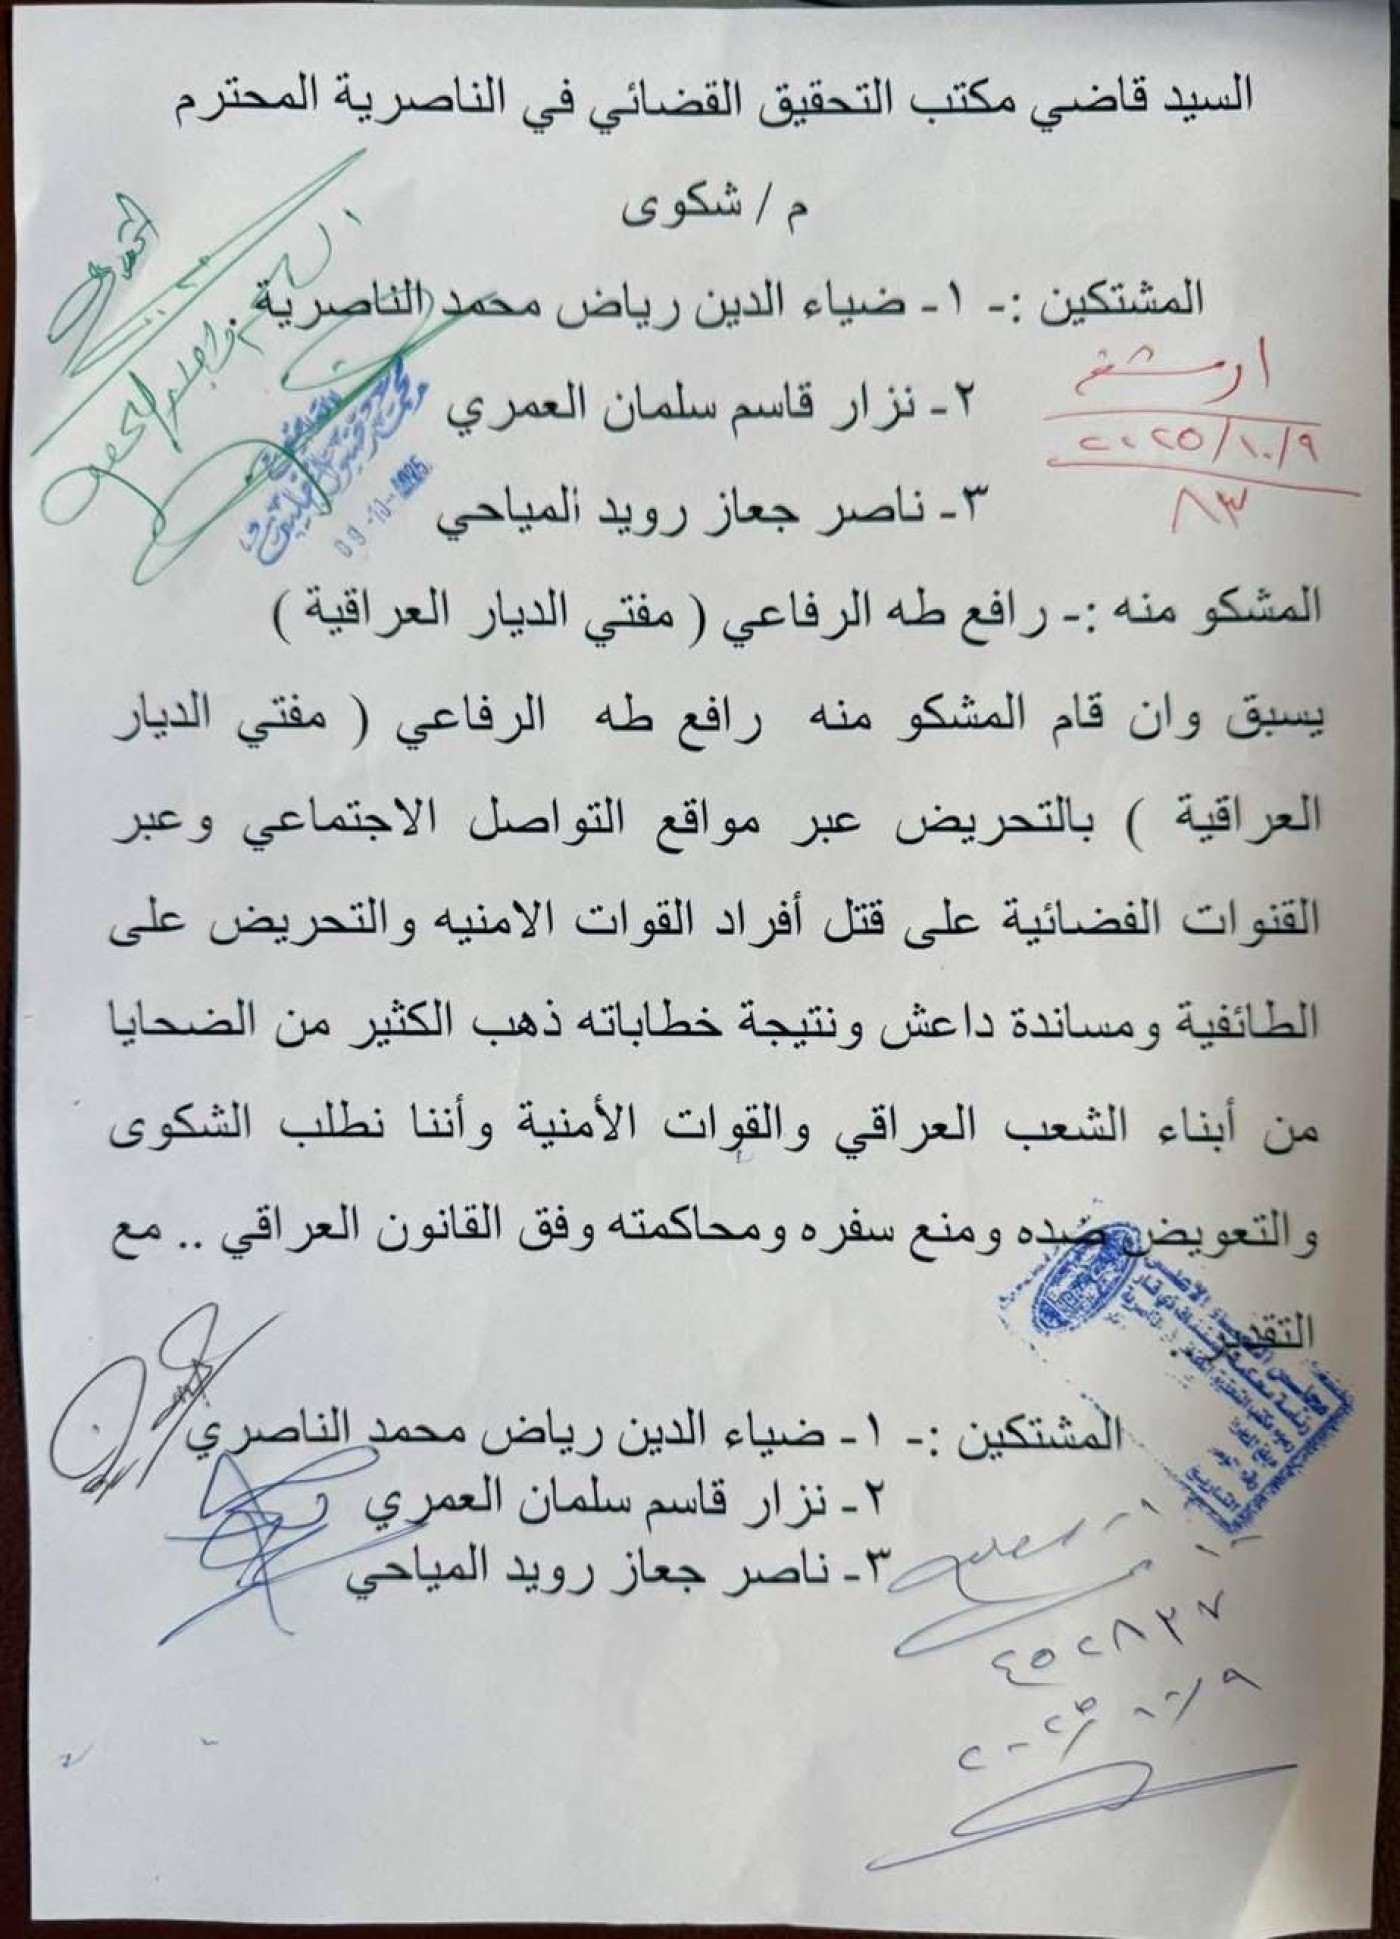 السيد قاضي مكتب التحقيق القضائي في الناصرية المحترم
م / شكوى
المشتكين :- ١- ضياء الدين رياض محمد الناصرية .
٢- نزار قاسم سلمان العمري
٣- ناصر جعاز رويد المياحي
٢٠٢٥/١٠/٩
٨٣
المشكو منه :- رافع طه الرفاعي ( مفتي الديار العراقية )
يسبق وان قام المشكو منه رافع طه الرفاعي ( مفتي الديار
العراقية ) بالتحريض عبر مواقع التواصل الاجتماعي وعبر
القنوات الفضائية على قتل أفراد القوات الامنيه والتحريض على
الطائفية ومساندة داعش ونتيجة خطاباته ذهب الكثير من الضحايا
من أبناء الشعب العراقي والقوات الأمنية وأننا نطلب الشكوى
والتعويض ضده ومنع سفره ومحاكمته وفق القانون العراقي .. مع
التقدير
المشتكين :- ١- ضياء الدين رياض محمد الناصري
٢- نزار قاسم سلمان العمري
٣- ناصر جعاز رويد المياحي